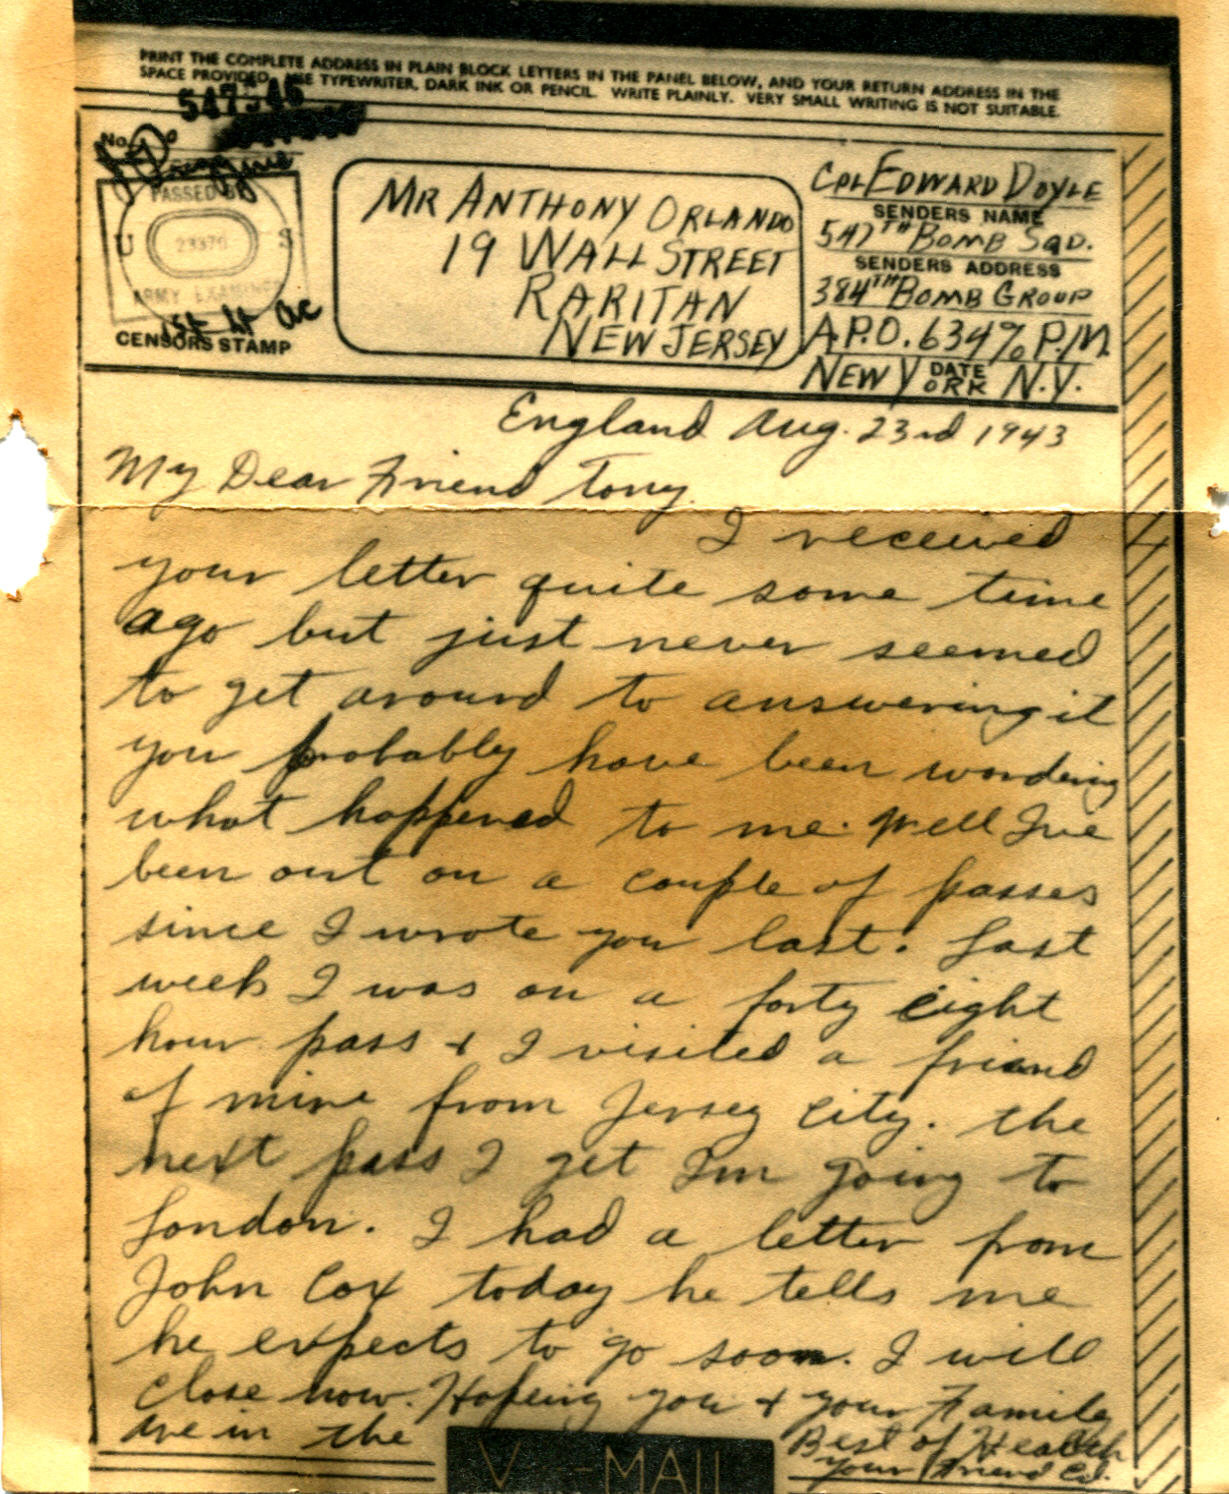 PRINT THE COMPLETE ADDRESS IN PLAIN BLOCK LETTERS IN THE PANEL BELOW, AND YOUR RETURN ADDRESS IN THE
SPACE PROVIDED. USE TYPEWRITER, DARK INK OR PENCIL. WRITE PLAINLY. VERY SMALL WRITING IS NOT SUITABLE.
No.
PASSED BY
U S
ARMY EXAMINER
1st Lt Ac
CENSORS STAMP
MR ANTHONY ORLANDO
19 WALL STREET
RARITAN
NEW JERSEY
CPL EDWARD DOYLE
SENDERS NAME
547TH BOMB SQD.
SENDERS ADDRESS
384TH BOMB GROUP
A.P.O. 634 % P.M.
DATE
NEW YORK N.Y.
England Aug. 23rd 1943
My Dear Friend Tony.
I received
your letter quite some time
ago but just never seemed
to get around to answering it
you probably have been wondering
what happened to me. Well I've
been out on a couple of passes
since I wrote you last. Last
week I was on a forty eight
hour pass + I visited a friend
of mine from Jersey City. the
next pass I get I'm going to
London. I had a letter from
John Cox today he tells me
he expects to go soon. I will
close now. Hopeing you + your Family
are in the Best of Health
Your Friend Ed.
V-MAIL